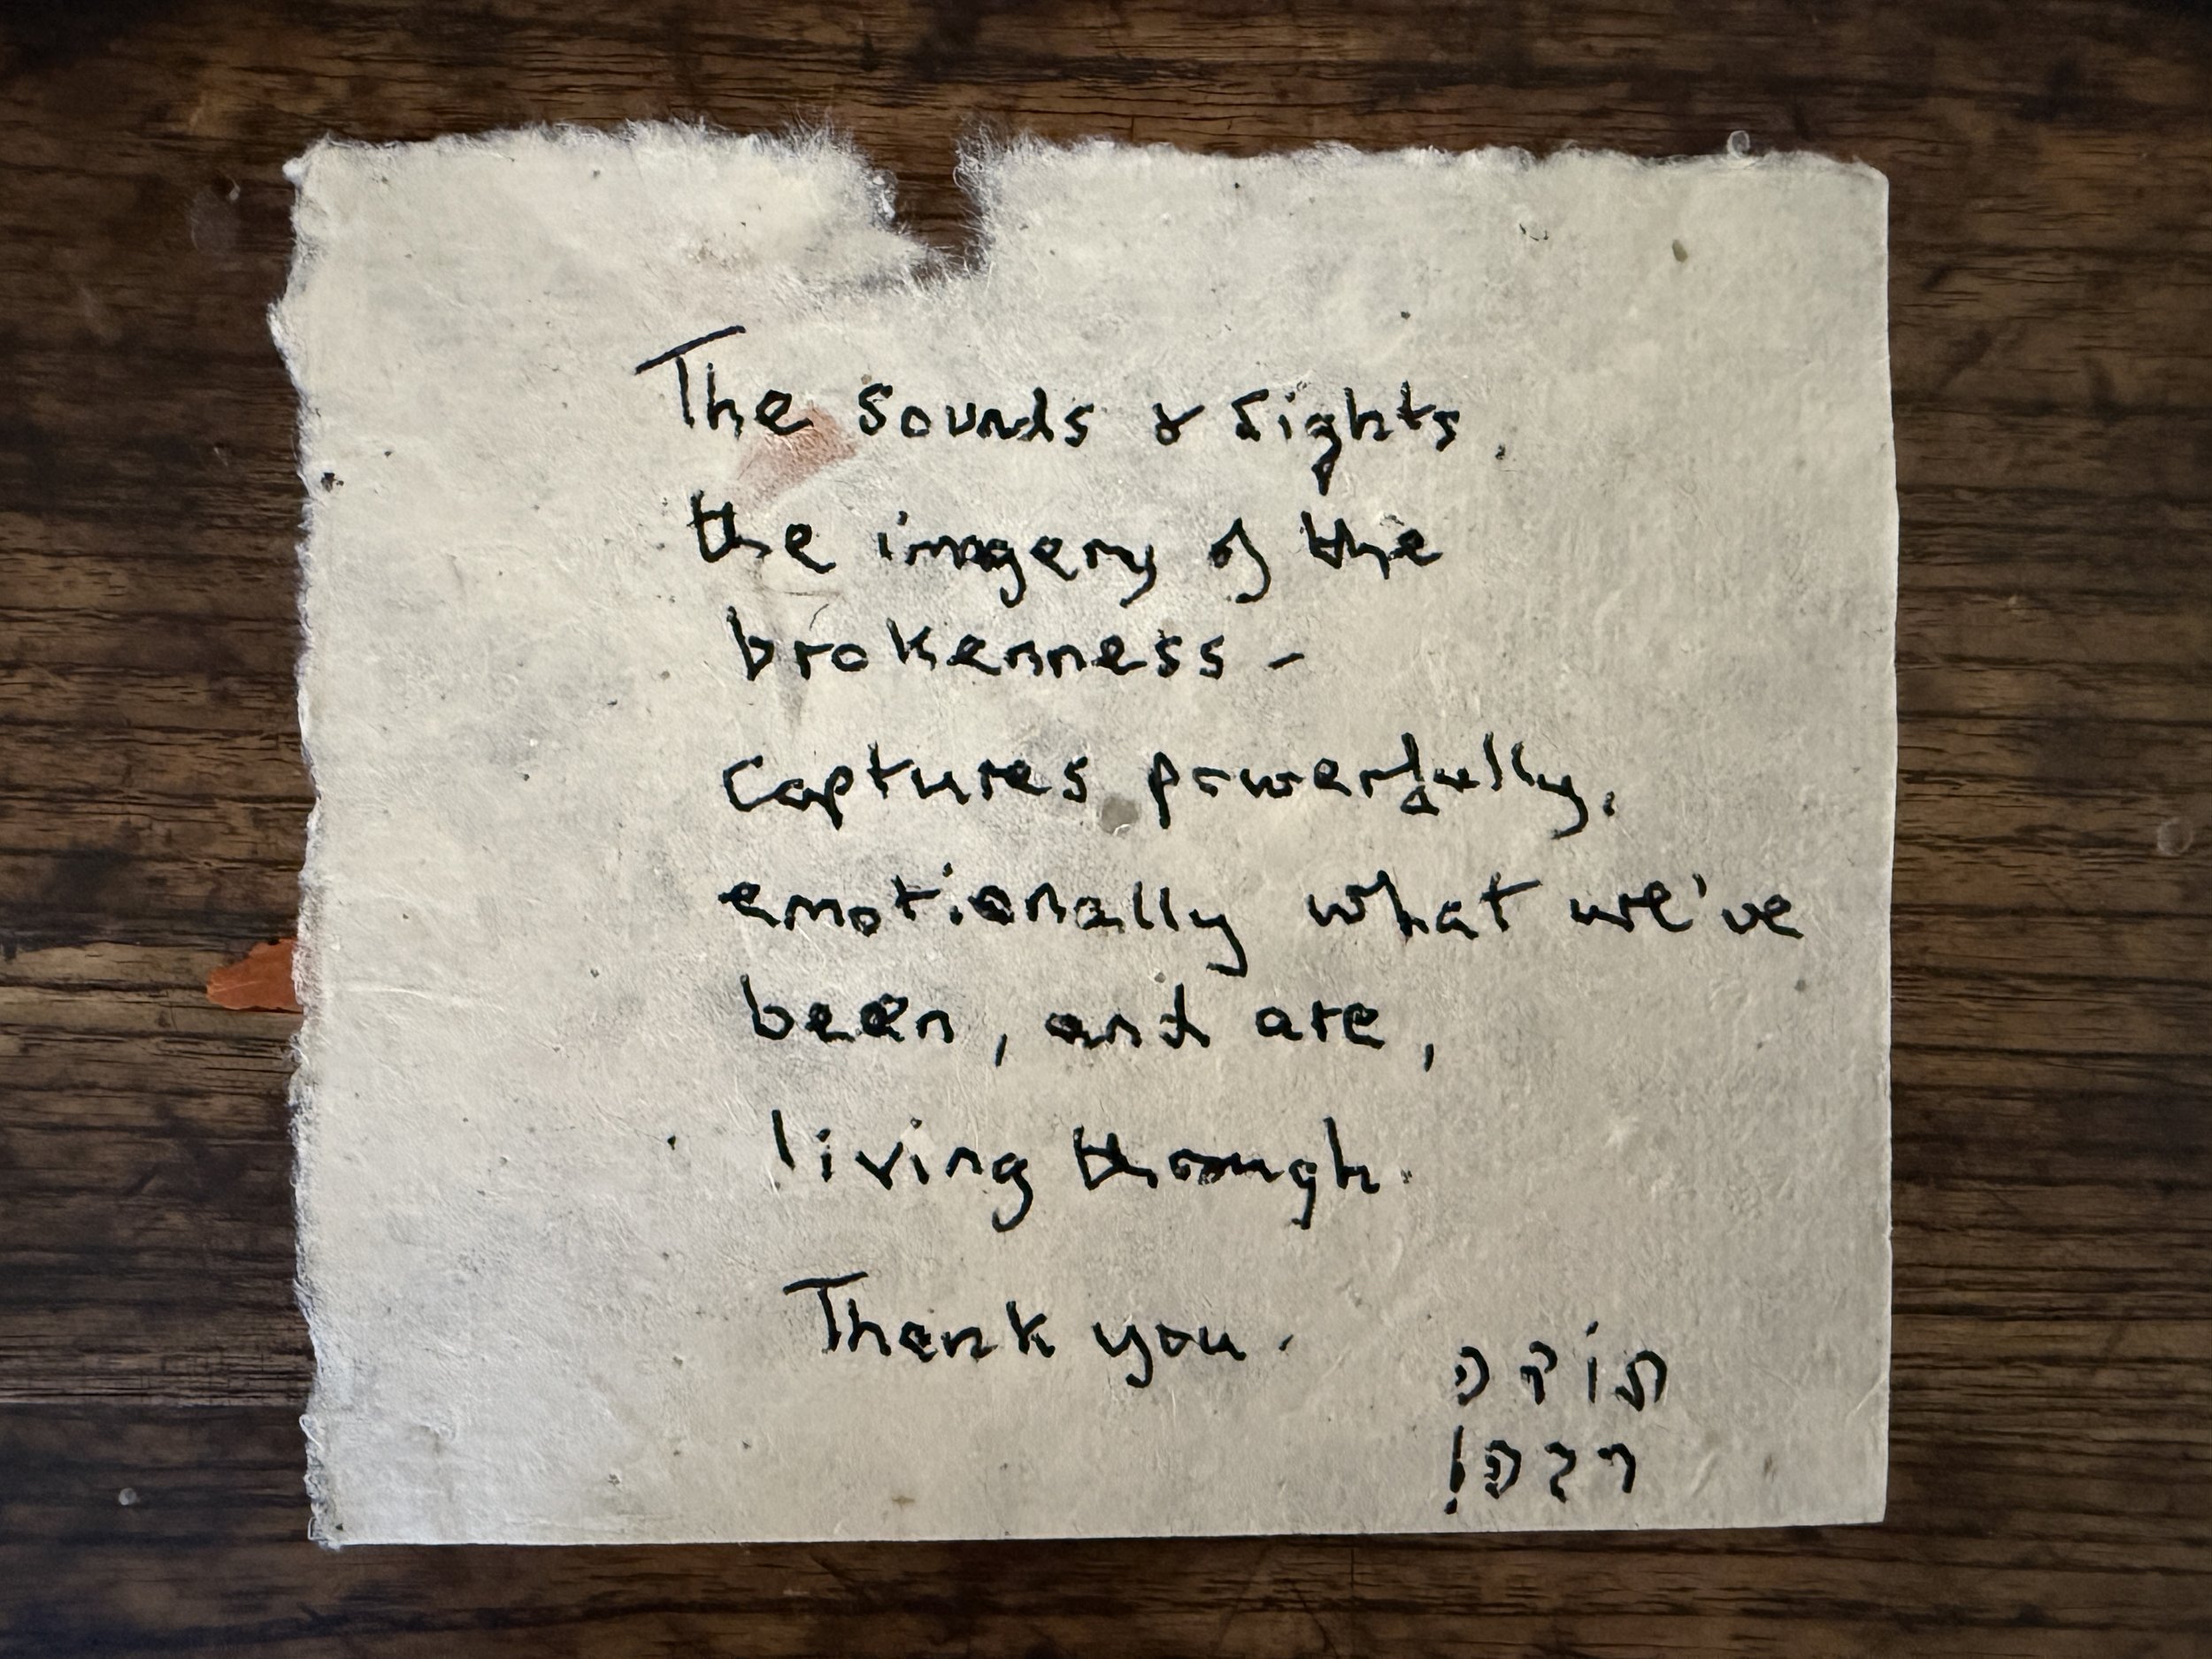 The sounds & sights,
the imagery of the
brokenness -
captures powerfully,
emotionally what we've
been, and are,
living through.
Thank you.
תודה
רבה!